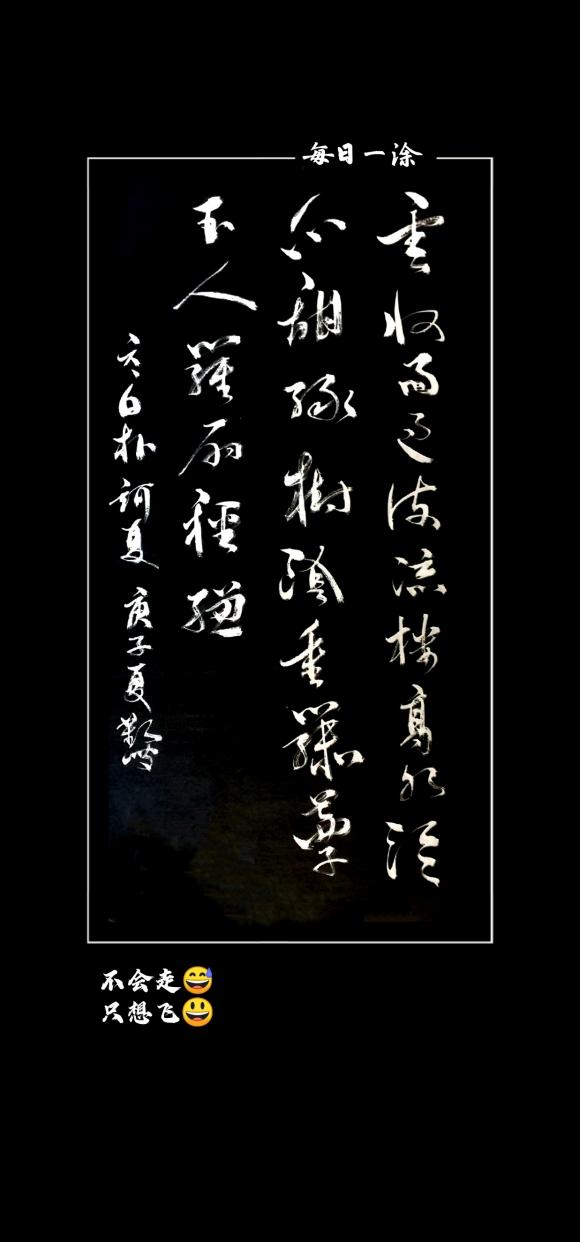 每日一涂
雲收雨過波添樓高水冷
瓜甜綠樹陰垂畫
玉人羅扇輕縑
元白朴詞夏 庚子夏
不会走😅
只想飞😃